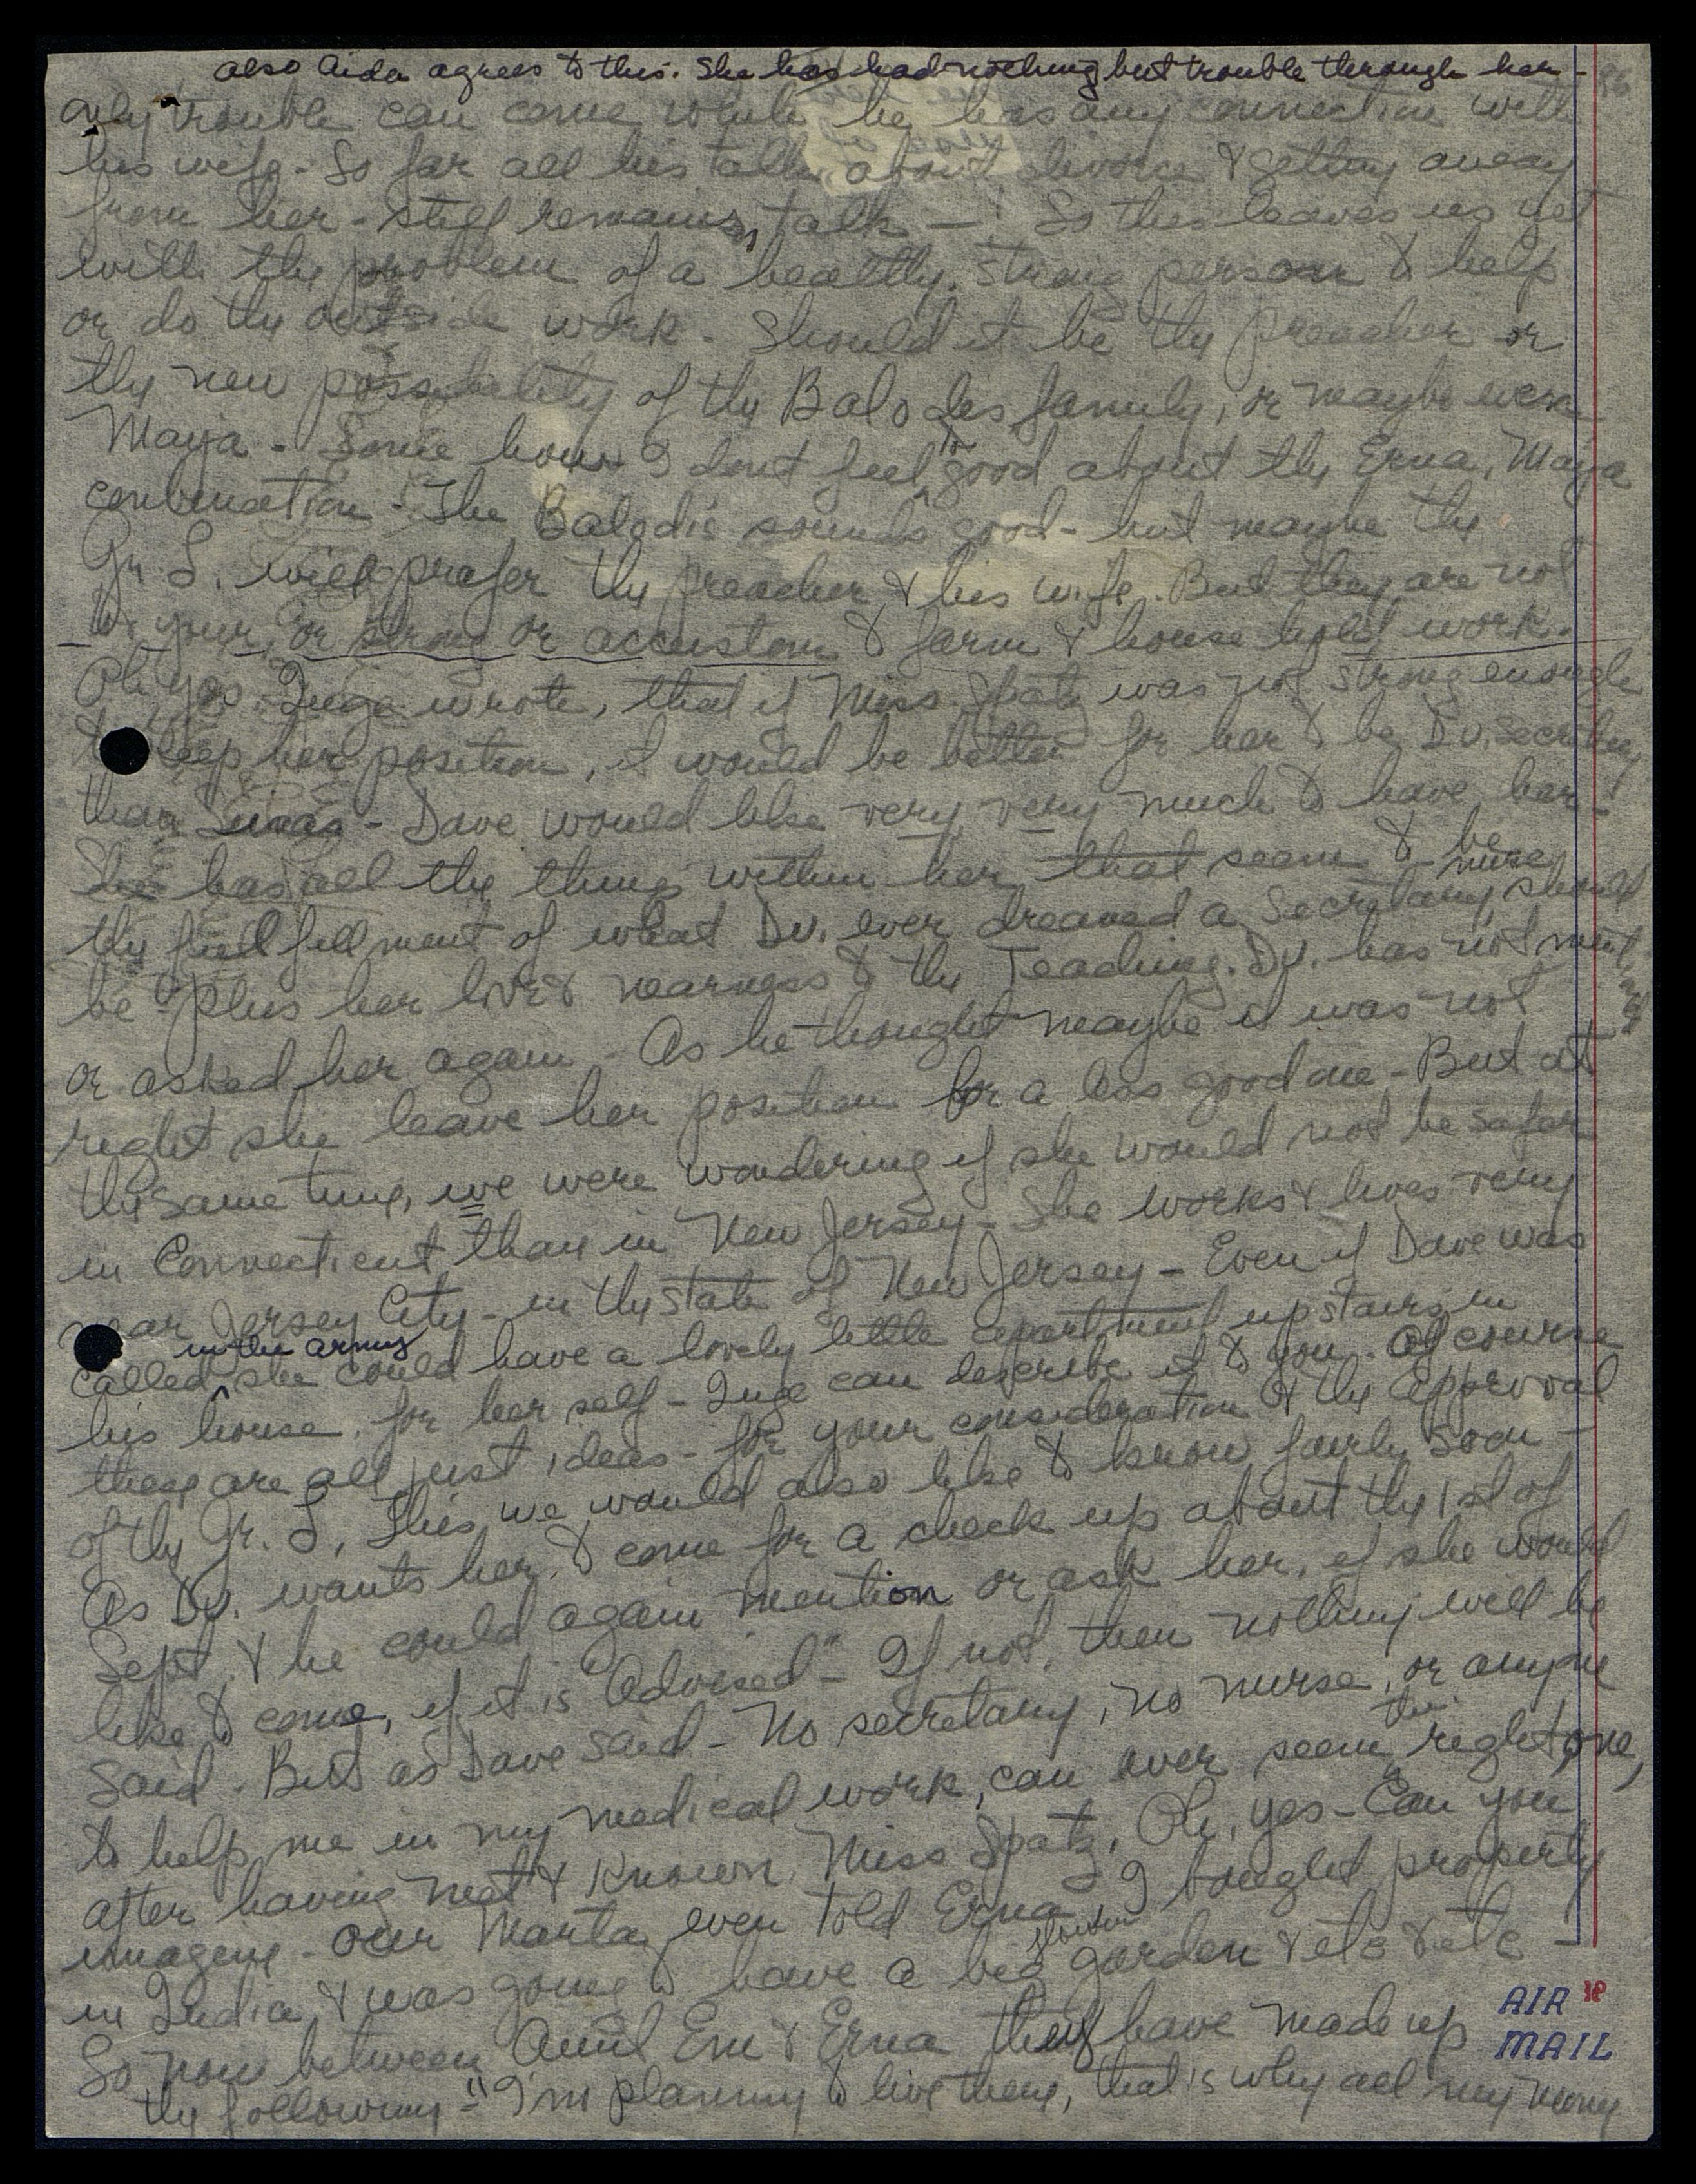 also Aida agrees to this. She has had nothing but trouble through her -
86
only trouble can come while he has any connection with
his wife - So far all his talk about divorce & getting away
from her - still remains, talk - ! So this leaves us yet
with the problem of a healthy, strong person & help
or do the outside work - Should it be the preacher or
the new possibility of the Balodis family, or maybe even
Maija - Some how I dont feel to good about the Erna, Maija
conbination - The Balodis sounds good - but maybe the
Gr. L. will prefer the preacher & his wife. But they are not
to young, or strong or accustom & farm & house hold work.
Oh yes. Inge wrote, that if Miss Spatz was not strong enough
to keep her position, it would be better for her & be Dv. secretary
than - Dave would like very very much & have her -
She has all the things within her, that seem & be
the full fill ment of what Dv. ever dreamed a Secretary, nurse should
be - Plus her love & nearness & the Teaching. Dv. has not
or asked her again - As he thought maybe it was not
right she leave her position for a less good one - But at
the same time, we were wondering if she would not be safer
in Connecticut, than in New Jersey - She works & lives very
near Jersey City - in the state of New Jersey - Even if Dave was
called in the army she could have a lovely little apartment upstairs in
his house, for her self - Inge can describe it & you. Of course
these are all just ideas - for your consideration & the Approval
of the Gr. L. This we would also like & know fairly soon -
As Dv. wants her & come for a check up about the 1st of
Sept. & he could again mention or ask her, if she would
like & come, if it is "Advised" - If not, then nothing will be
said. But as Dave said - No secretary, no nurse, or anyone
to help me in my medical work, can ever seem the right one,
after having met & known Miss Spatz. Oh, yes - Can you
imagine - our Marta even told Erna I bought property
in India & was going & have a big flower garden & etc & etc -
So now between Aunt Em & Erna they have made up
the following - "I'm planning & live there, that is why all my money
AIR
MAIL